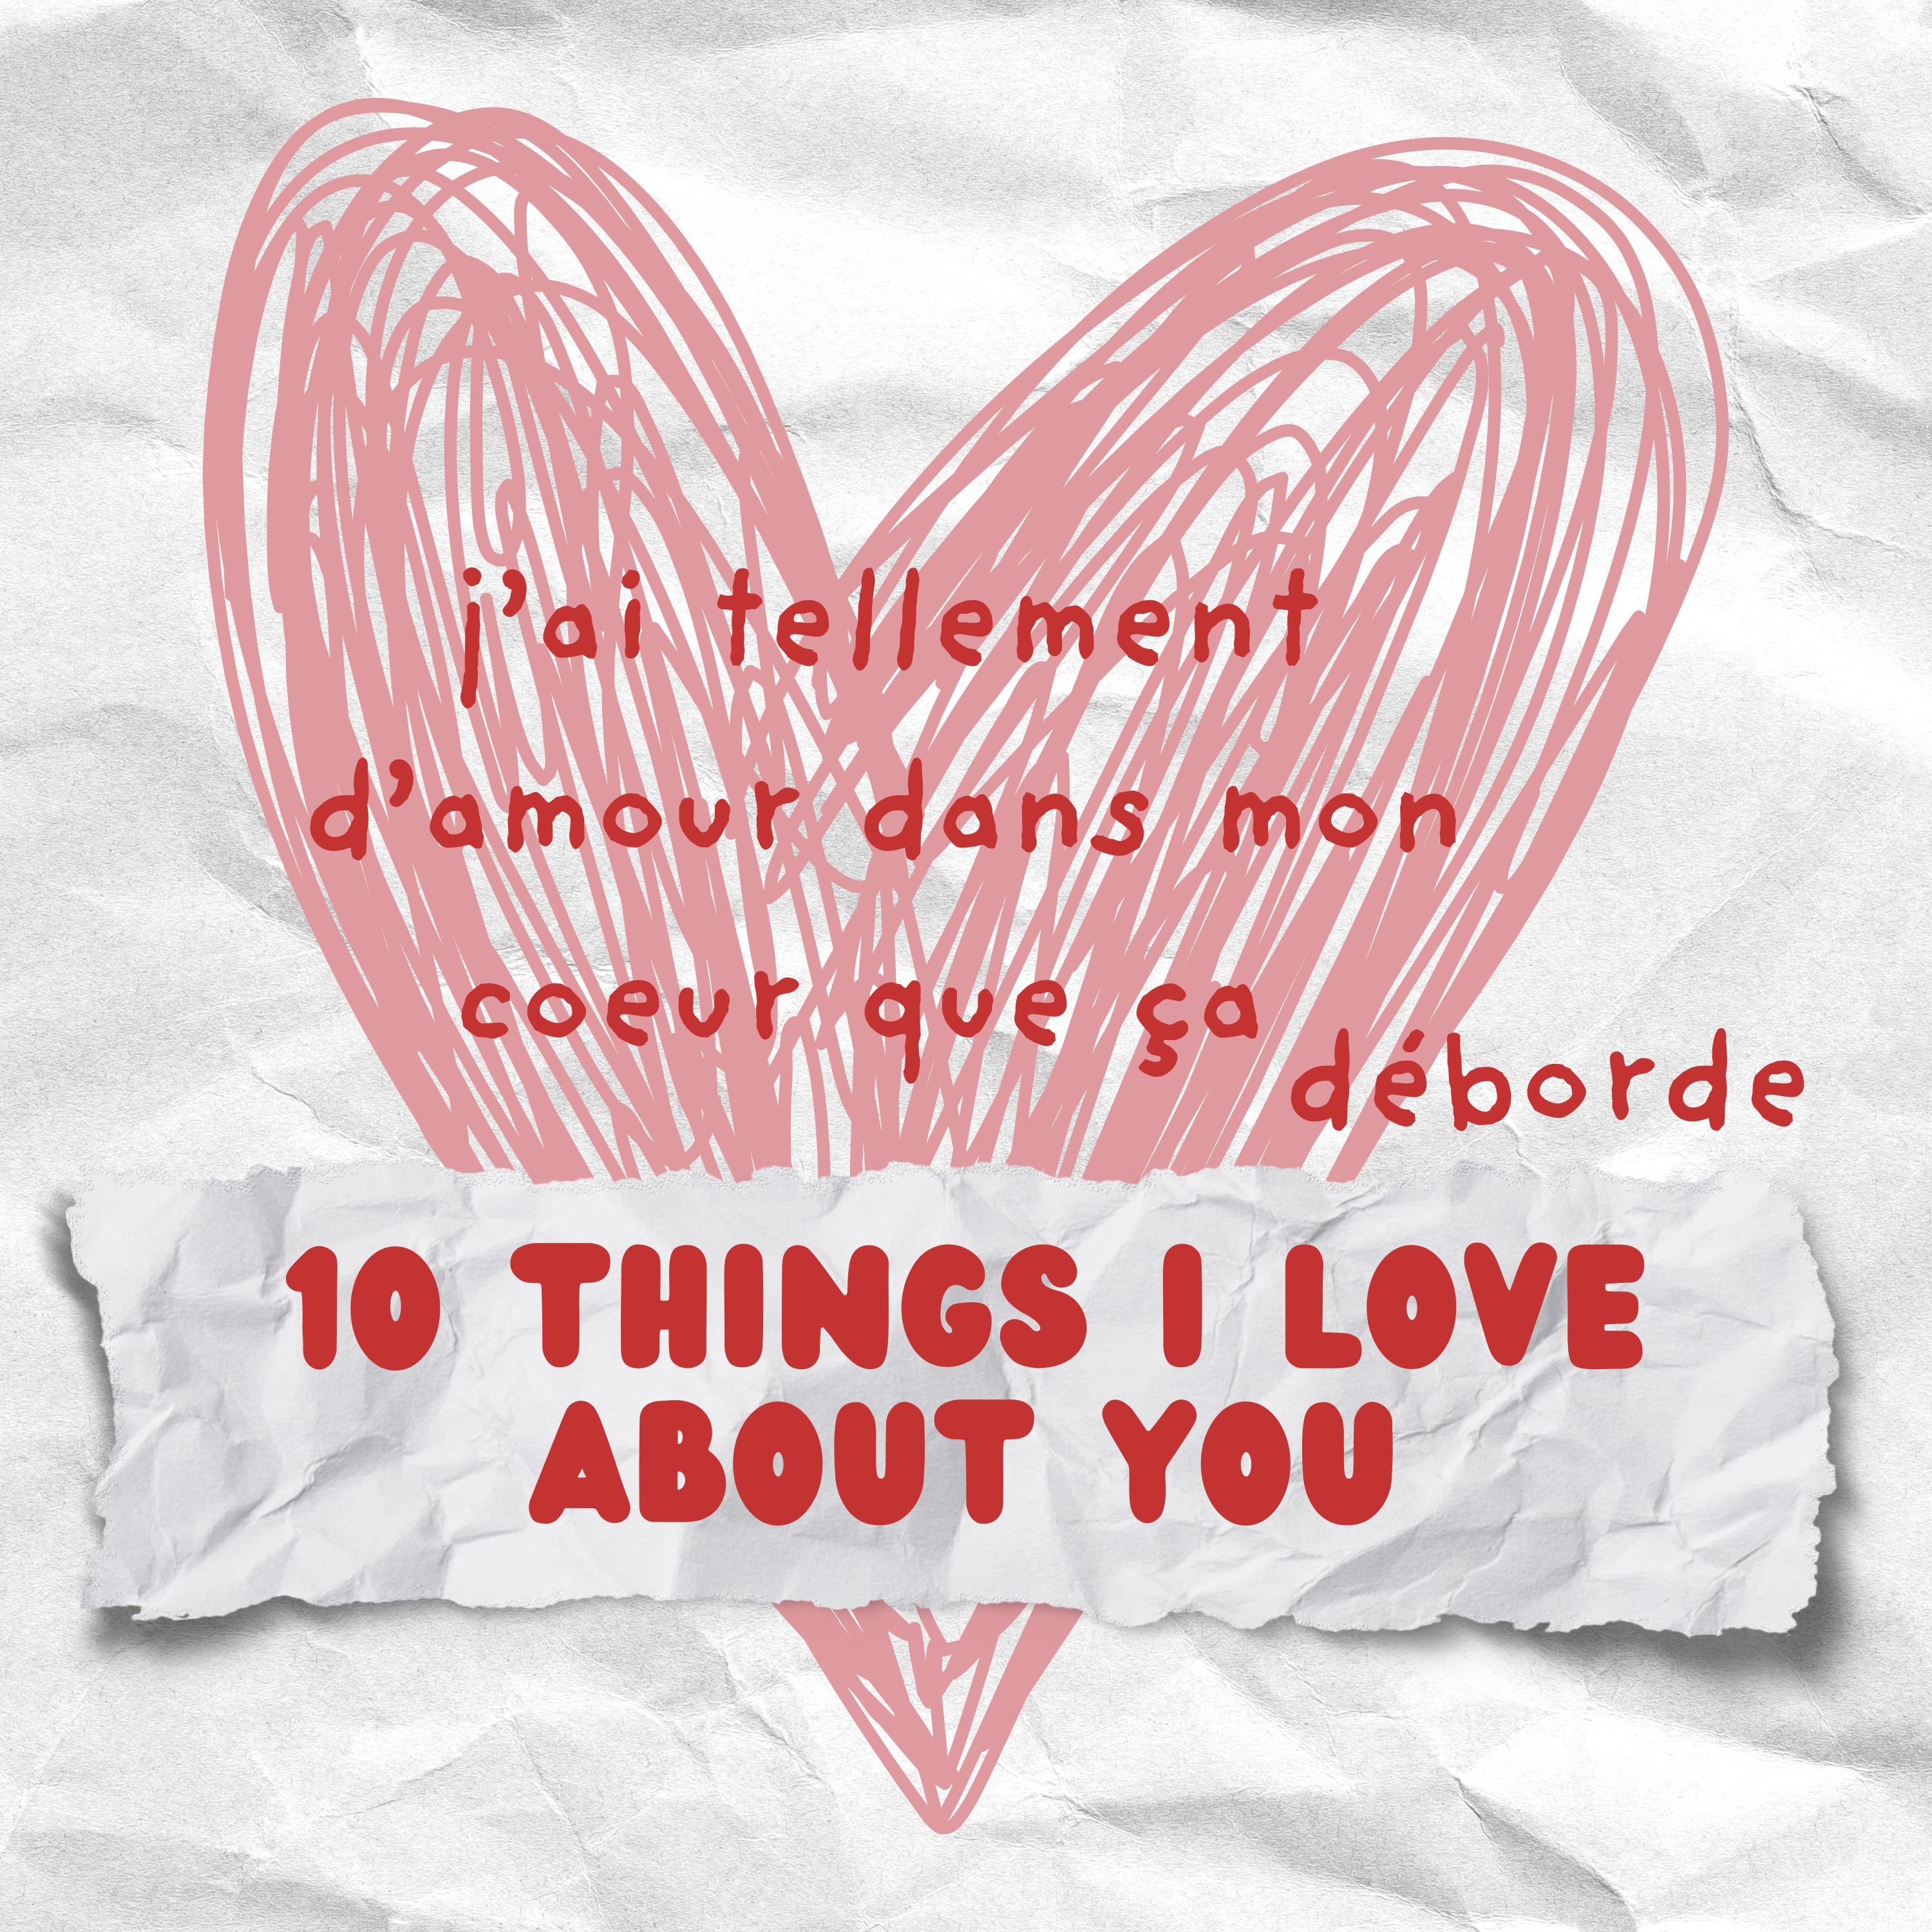 j'ai tellement
d'amour dans mon
coeur que ça
déborde
10 THINGS I LOVE
ABOUT YOU